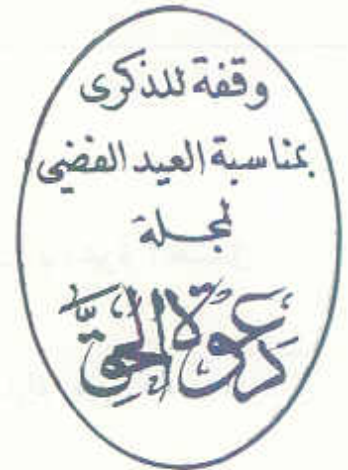 وقفة للذكرى
بمناسبة العيد الفضي
لمجلة
دعوة الحق